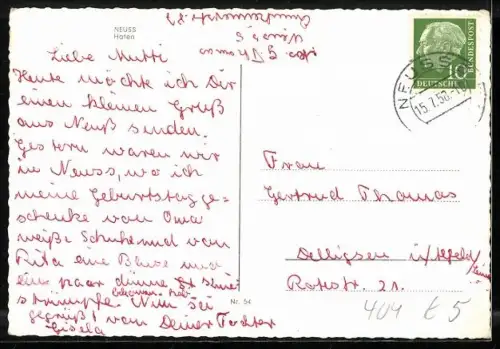 NEUSS
Hafen
Liebe Mutti
Heute möchte ich Dir
einen kleinen Gruß
aus Neuß senden.
Gestern waren wir
in Neuss, wo ich
meine Geburtstagge-
schenke von Oma
weiße Schuhe und von
Rita eine Bluse und
ein paar dünne
strümpfe bekommen hab
Nun sei
gegrüßt von Deiner Tochter
Gisela
Nr. 54
Abs. G Thomas
Neuss
DEUTSCHE BUNDESPOST
10
NEUSS
15.7.58
Frau
Gertrud Thomas
Delligsen ü/Alfeld/Leine
Rotestr. 21.
404 € 5